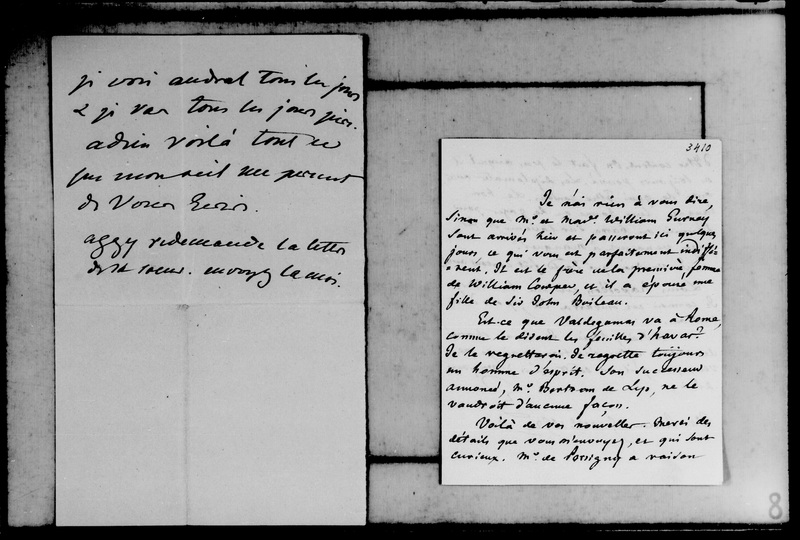 je vois andral tous les jours
& je vais tous les jours
adieu voilà tout ce
que mon œil me permet
de vous écrire.
aggy redemande la lettre
de sa sœur. envoyez la moi.
3410
Je n'ai rien à vous dire,
sinon que Mr. et Made. William Gurney
sont arrivés hier et passeront ici quelques
jours, ce qui vous est parfaitement indiffé-
-rent. Il est le frère de la première femme
de William Cowper, et il a épousé une
fille de Sir John Boileau.
Est-ce que Valdegamas va à Rome,
comme le disent les feuilles d'havas?
Je le regretterois. Je regrette toujours
un homme d'esprit. Son successeur
annoncé, Mr. Bertran de Lys, ne le
vaudroit d'aucune façon.
Voilà de vos nouvelles. Merci des
détails que vous m'envoyez, et qui sont
curieux. Mr. de Persigny a raison
8